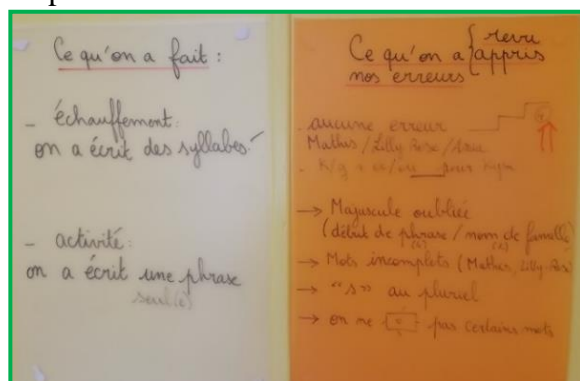 Ce qu'on a fait :
- échauffement :
on a écrit des syllabes
- activité :
on a écrit une phrase
seul(e)
Ce qu'on a { revu
appris
nos erreurs
- aucune erreur
Mathis / Lilly Rose /
→ Majuscule oubliée
(début de phrase / nom de famille)
→ Mots incomplets (Mathis, Lilly-Rose)
→ "s" au pluriel
→ on ne pas certains mots